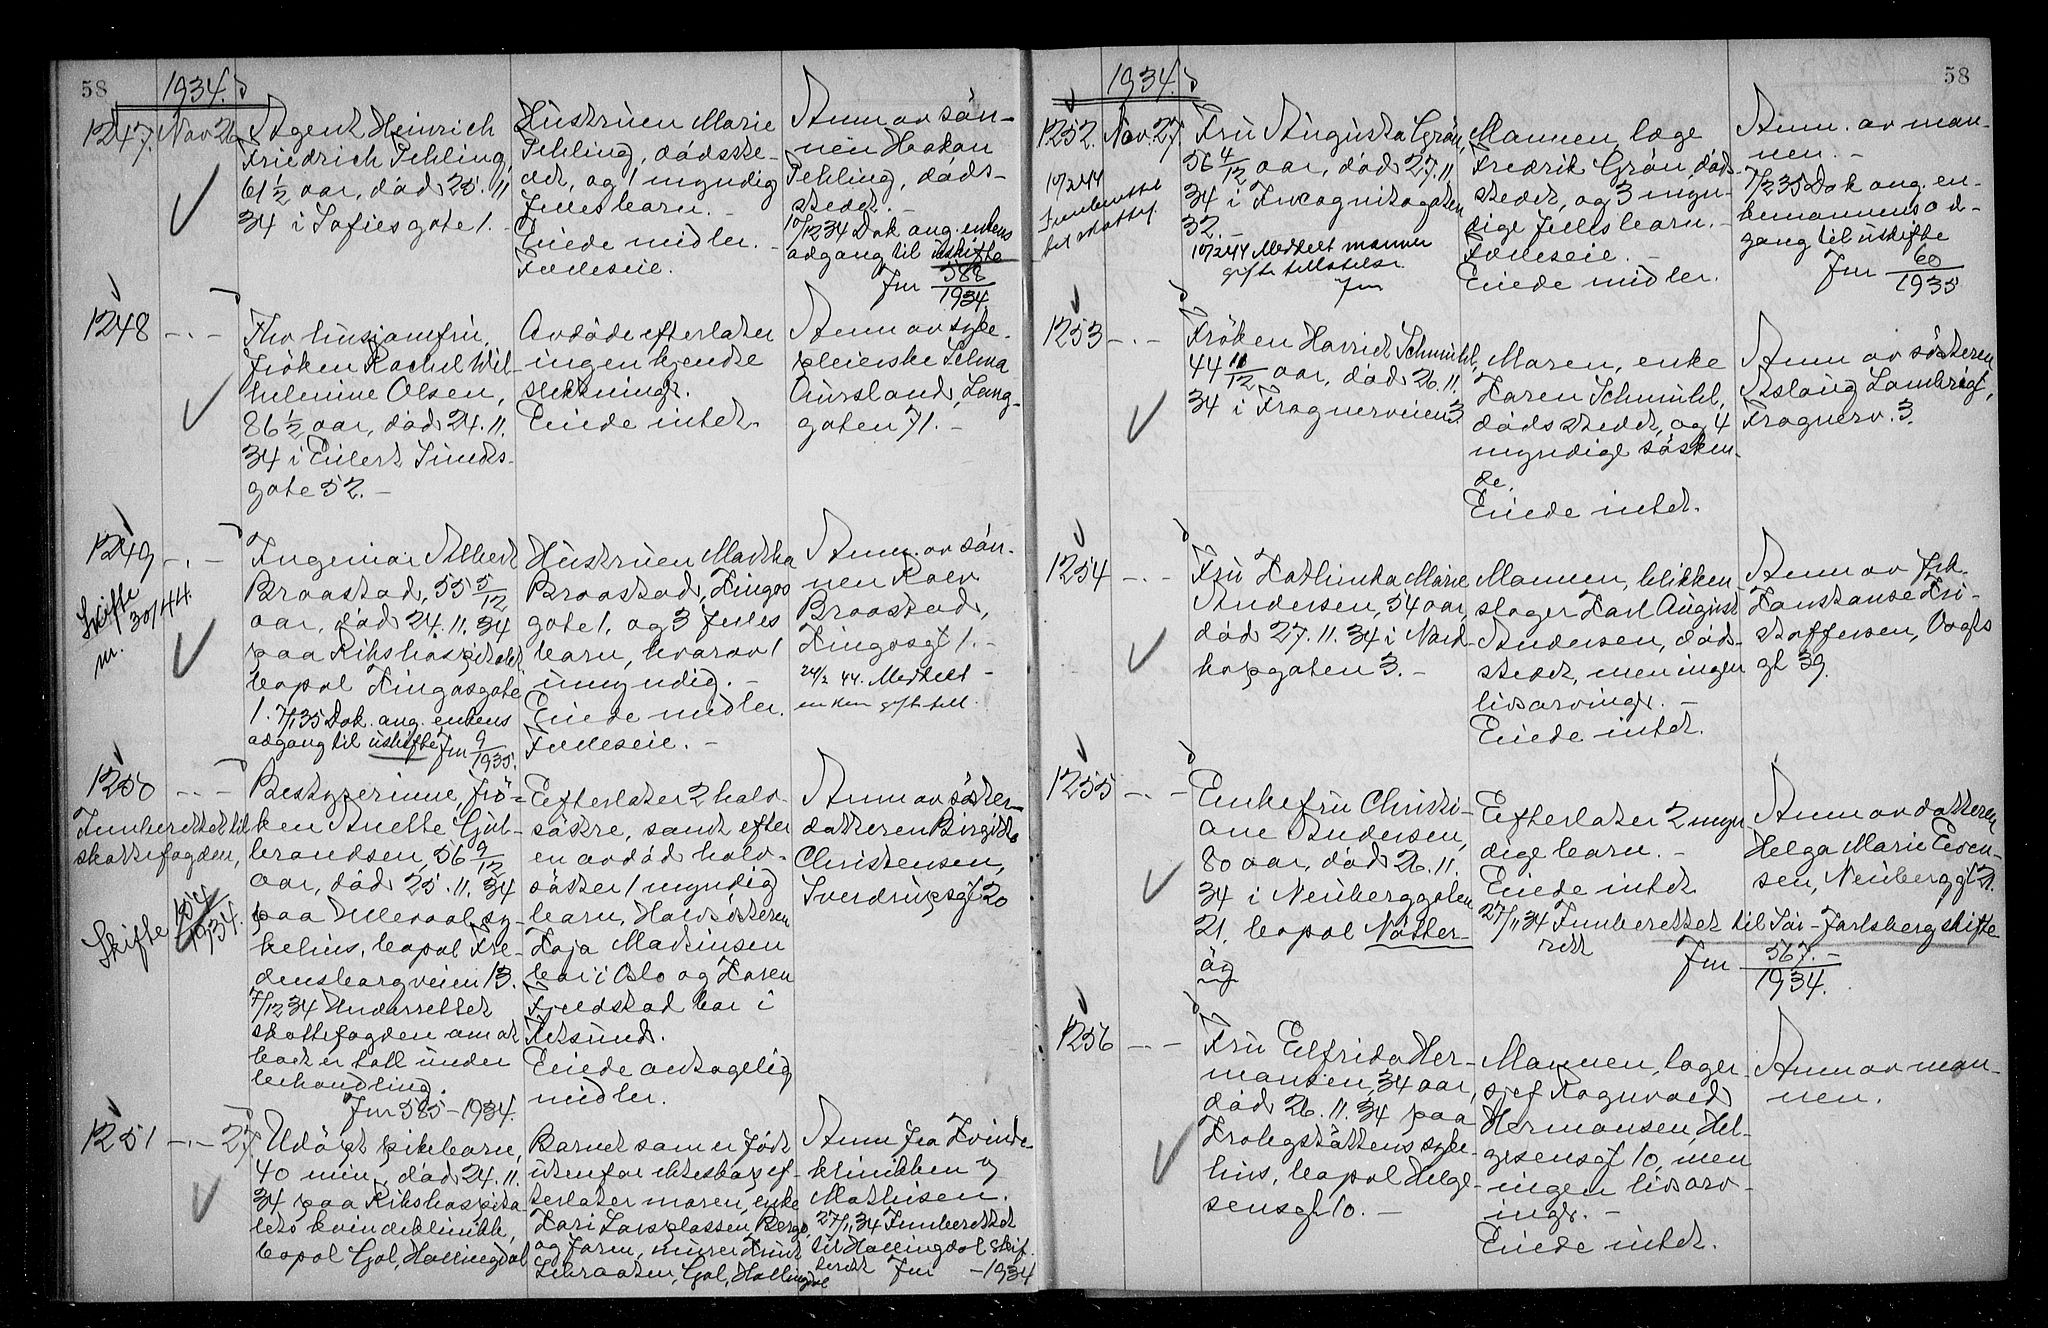 58
1934.
1247. Nov 26
Agent Heinrich
Friedrich Pehling,
61 1/2 aar, död 25.11.
34 i Sofiesgate 1. -
Hustruen Marie
Pehling, dödsste-
det, og 1 myndig
felles barn. -
Eiede midler. -
Fælleseie.
Anm. av sön-
nen Haakon
Pehling, döds-
stedet. -
10/12 34 Dok. ang. enkens
adgang til uskifte
Jnr 588/1934
1248 -.-
Fhv. husjomfru,
fröken Rachel Wil-
helmine Olsen,
86 1/2 aar, död 24.11.
34 i Eilert Sundts-
gate 52. -
Avdöde efterlater
ingen kjendte
slektninger.
Eiede intet.
Anm. av syke-
pleierske Selma
Aursland, Lang-
gaten 71. -
1249 -.-
Skifte
nr. 30/44.
Ingeniør Albert
Braastad, 55 5/12
aar, död 24.11.34
paa Rikshospitalet
bopel Kingosgate
1. 7/1 35 Dok. ang. enkens
adgang til uskifte Jnr 9/1935.
Hustruen Martha
Braastad, Kingos
gate 1, og 3 felles
barn, hvorav 1
umyndig. -
Eiede midler.
Fælleseie. -
Anm. av sön-
nen Rolv
Braastad,
Kingosgt 1. -
24/2 44. Meddelt
enken gift. till.
1250 -.-
Innberettet til
skattefogden,
Skifte 104/1934.
Bestyrerinne, frö-
ken Anette Gul-
brandsen, 56 9/12
aar, död 25.11.34
paa Ullevaal sy-
kehus, bopel Fre-
densborgveien 13.
7/12 34 Underrettet
skattefogden om at
boet er tatt under
behandling.
Jnr 585-1934.
Efterlater 2 halv-
söstre, samt efter
en avdöd halv-
söster 1 myndig
barn, Halvsösteren
Kaja Martinsen
bor i Oslo og Karen
Fredstad bor i
Fetsund.
Eiede antagelig
midler.
Anm. av söster-
datteren Birgitte
Christensen,
Sverdrupsgt 20
1251 -.- 27.
Udöpt pikebarn,
40 min., död 24.11.
34 paa Rikshospita-
lets kvindeklinikk,
bopel Gol, Hallingdal
Barnet som er födt
utenfor ekteskap ef-
terlater moren, enke
Kari Larsplassen, Bergo,
og faren, murer Knut
Lehraaten, Gol, Hallingdal
Anm. fra Kvinde-
klinikken v
Mathisen.
27/11 34 Innberettet
til Hallingdal skif-
terett Jnr -1934
58
1934.
1252. Nov. 27.
10/2 44
Innberettet
til skattef.
Fru Augusta Grön,
56 4/12 aar, död 27.11.
34 i Incognitogaten
32. -
10/2 44 Meddelt mannen
gifte tillatelse
Jnr
Mannen, læge
Fredrik Grön, döds-
stedet, og 3 myn-
dige felles barn. -
Fælleseie. -
Eiede midler.
Anm. av man-
nen. -
7/2 35 Dok ang. en-
kemannens ad-
gang til uskifte
Jnr 60/1935
1253 -.-
Fröken Harriet Schmühl,
44 11/12 aar, död 26.11.
34 i Frognerveien 3.
Moren, enke
Karen Schmühl,
dödsstedet, og 4
myndige sösken-
de.
Eiede intet.
Anm. av sösteren
Aslaug Lambrigt,
Frognerv. 3.
1254 -.-
Fru Kathinka Marie
Andersen, 54 aar,
död 27.11.34 i Nord-
kapgaten 3. -
Mannen, blikken-
slager Karl August
Andersen, döds-
stedet, men ingen
livsarvinger. -
Eiede intet.
Anm. av frk.
Konstanse Kri-
stoffersen, Vogts
gt 39.
1255 -.-
Enkefru Christi-
ane Andersen,
80 aar, död 26.11.
34 i Neuberggaten
21, bopel Nötter-
öy
Efterlater 2 myn-
dige barn. -
Eiede intet
27/11 34 Innberettet til Sör-Jarlsberg skifte
rett Jnr 567. -/1934.
Anm. av datteren
Helga Marie Even-
sen, Neuberggt 21.
1256 -.-
Fru Elfrida Her-
mansen, 34 aar,
död 26.11.34 paa
Krohgstöttens syke-
hus, bopel Helge-
sensgt 10. -
Mannen, lager-
sjef Ragnvald
Hermansen, Hel-
gesensgt 10, men
ingen livsarv-
inger. -
Eiede intet.
Anm. av man-
nen.